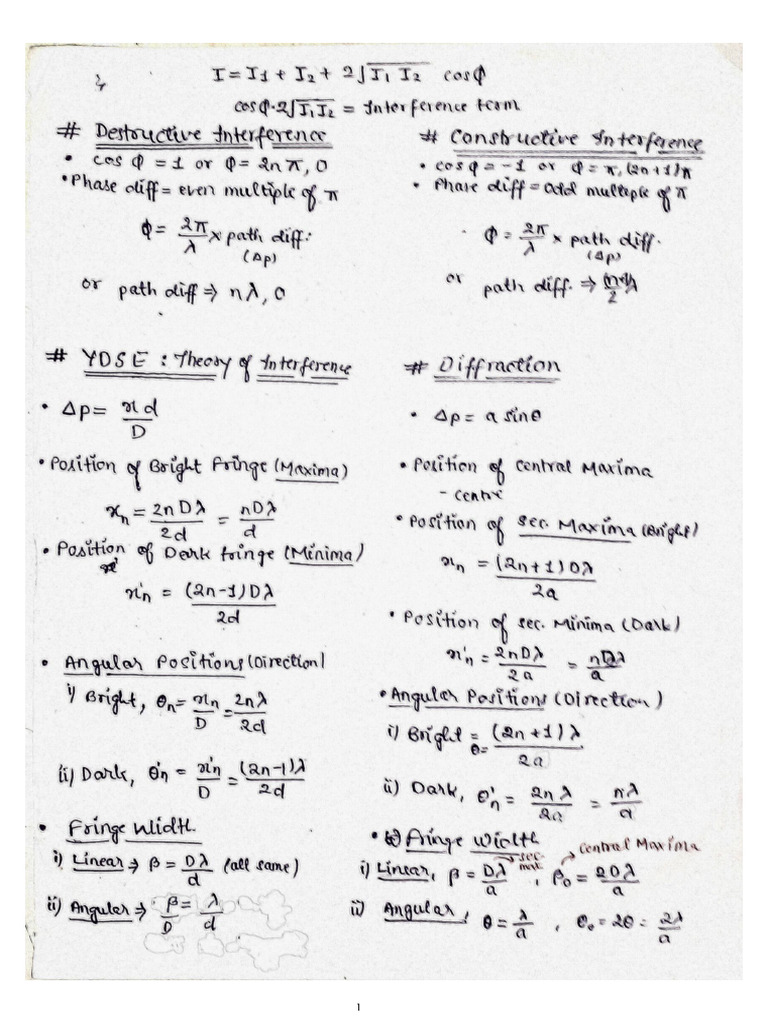 I = I1 + I2 + 2√I1 I2 cosϕ
cosϕ·2√I1I2 = Interference term
# Destructive Interference
• cos ϕ = 1 or ϕ = 2nπ, 0
• Phase diff = even multiple of π
ϕ = 2π/λ × path diff.
(Δp)
or path diff ⇒ nλ, 0
# Constructive Interference
• cosϕ = -1 or ϕ = π, (2n+1)π
• Phase diff = odd multiple of π
ϕ = 2π/λ × path diff.
(Δp)
or path diff. ⇒
# YDSE : Theory of Interference
• Δp = xd/D
• Position of Bright Fringe (Maxima)
xn = 2nDλ/2d = nDλ/d
• Position of Dark fringe (Minima)
x'n = (2n-1)Dλ/2d
• Angular Positions (Direction)
i) Bright, θn = xn/D = 2nλ/2d
ii) Dark, θ'n = x'n/D = (2n-1)λ/2d
• Fringe Width
i) Linear ⇒ β = Dλ/d (all same)
ii) Angular ⇒ β/D = λ/d
# Diffraction
• Δp = a sinθ
• Position of Central Maxima
- centre
• Position of sec. Maxima (Bright)
xn = (2n+1)Dλ/2a
• Position of sec. Minima (Dark)
x'n = 2nDλ/2a = nDλ/a
• Angular Positions (Direction)
i) Bright θ = (2n+1)λ/2a
ii) Dark, θ'n = 2nλ/2a = nλ/a
• Fringe Width
i) Linear, β = Dλ/a → sec. max, β0 = 2Dλ/a → Central Maxima
ii) Angular, θ = λ/a , θo = 2θ = 2λ/a
1